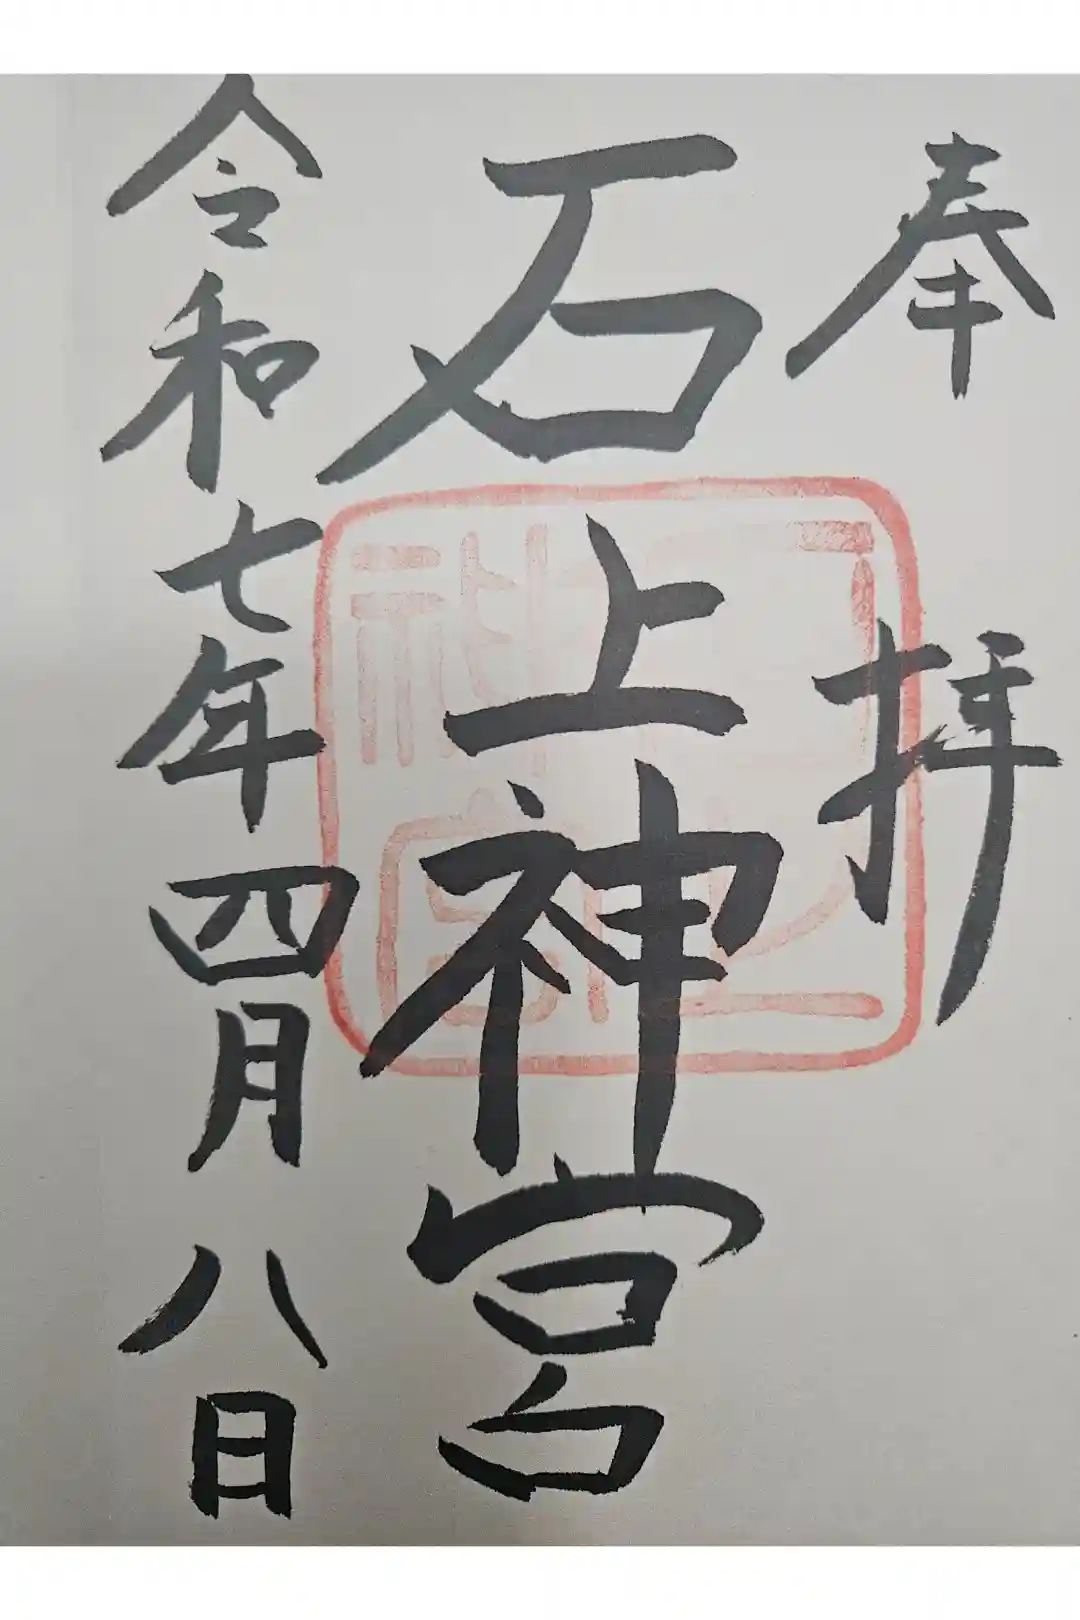 奉拝
石上神宮
令和七年四月八日